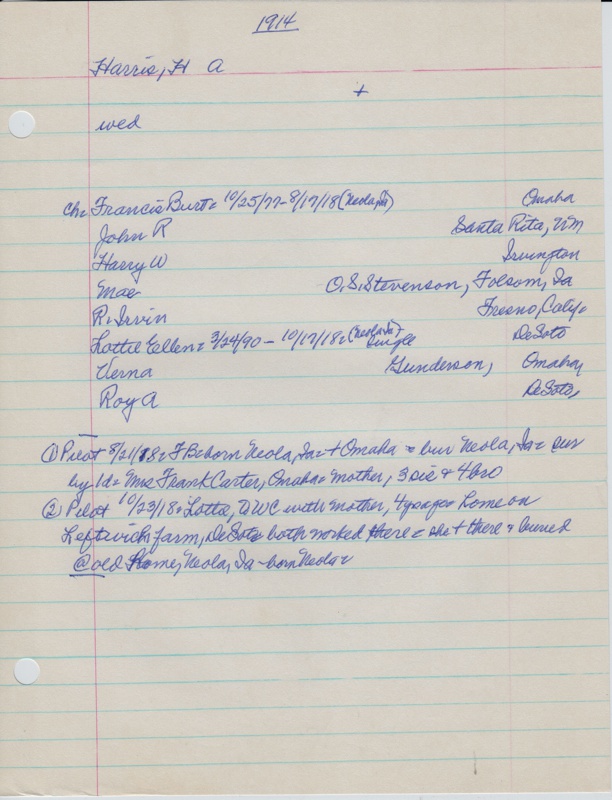 1914
Harris, H A
+
wed
ch= Francis Burt= 10/25/77-8/17/18 (Neola, Ia) Omaha
John R Santa Rita, NM
Harry W Irvington
Mae O.S. Stevenson, Folsom, Ia
R. Irvin Fresno, Calif=
Lottie Ellen= 3/24/90 - 10/17/18= (Neola Ia) Single DeSoto
Verna Gunderson, Omaha,
Roy A DeSoto,
① Pilot 8/21/18= F B= born Neola, Ia= + Omaha = bur Neola, Ia= sur
by 1d= Mrs Frank Carter, Omaha= mother, 3 sis + 4 bro
② Pilot 10/23/18= Lotta, with mother, 4 yrs ago= home on
Leftwich farm, DeSoto both worked there = she + there = buried
@ old home, Neola, Ia - born Neola=